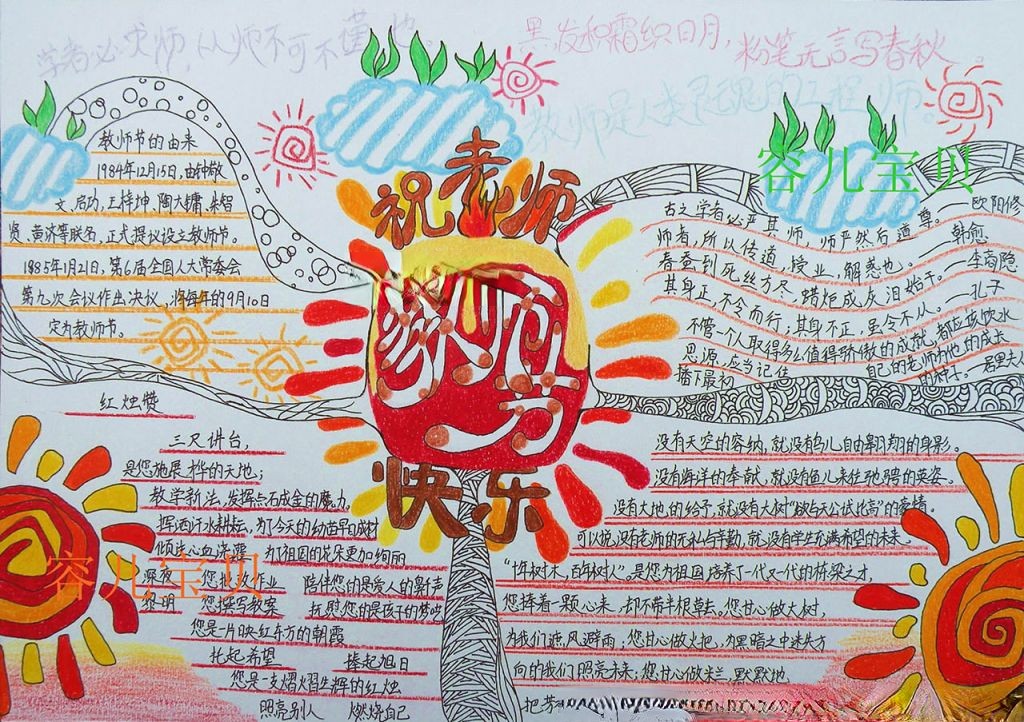 学者必求师,从师不可不谨也
黑发积霜织日月,粉笔无言写春秋。
教师是人类灵魂的工程师。
容儿宝贝
祝老师
教师节
快乐
教师节的由来
1984年12月15日,由钟敬
文、启功、王梓坤、陶大镛、朱智
贤、黄济等联名,正式提议设立教师节。
1985年1月21日,第6届全国人大常委会
第九次会议作出决议,将每年的9月10日
定为教师节。
古之学者必严其师,师严然后道尊。—欧阳修
师者,所以传道,授业,解惑也。—韩愈
春蚕到死丝方尽,蜡炬成灰泪始干。—李商隐
其身正,不令而行;其身不正,虽令不从。—孔子
不管一个人取得多么值得骄傲的成就,都应该饮水
思源,应当记住 自己的老师为他的成长
播下最初 的种子。居里夫人
红烛赞
三尺讲台,
是您施展才华的天地;
教学新法,发挥点石成金的魔力。
挥洒汗水耕耘,为了今天的幼苗早日成材
倾注心血浇灌 为了祖国的花朵更加绚丽
深夜 您批改作业 陪伴您的是爱人的鼾声
黎明 您撰写教案 抚慰您的是孩子的梦呓
您是一片映红东方的朝霞
托起希望 捧起旭日
您是一支熠熠生辉的红烛
照亮别人 燃烧自己
容儿宝贝
没有天空的容纳,就没有鸟儿自由翱翔的身影。
没有海洋的奉献,就没有鱼儿来往驰骋的英姿。
没有大地的给予,就没有大树“欲与天公试比高”的豪情。
可以说,没有老师的无私与辛勤,就没有学生充满希望的未来。
“十年树木,百年树人”。是您为祖国培养了一代又一代的栋梁之才,
您捧着一颗心来,却不带半根草去。您甘心做大树,
为我们遮风避雨;您甘心做火把,为黑暗之中迷失方
向的我们照亮未来;您甘心做米兰,默默地
把芳